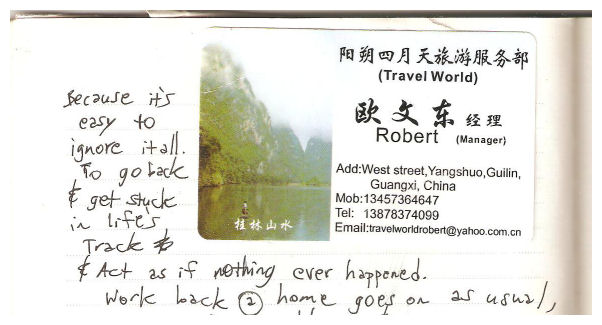 Because it's
easy to
ignore it all.
To go back
& get stuck
in life's
Track
& Act as if nothing ever happened.
Work back @ home goes on as usual,
阳朔四月天旅游服务部
(Travel World)
欧文东 经理
Robert (Manager)
Add:West street,Yangshuo,Guilin,
Guangxi, China
Mob:13457364647
Tel: 13878374099
Email:travelworldrobert@yahoo.com.cn
桂林山水